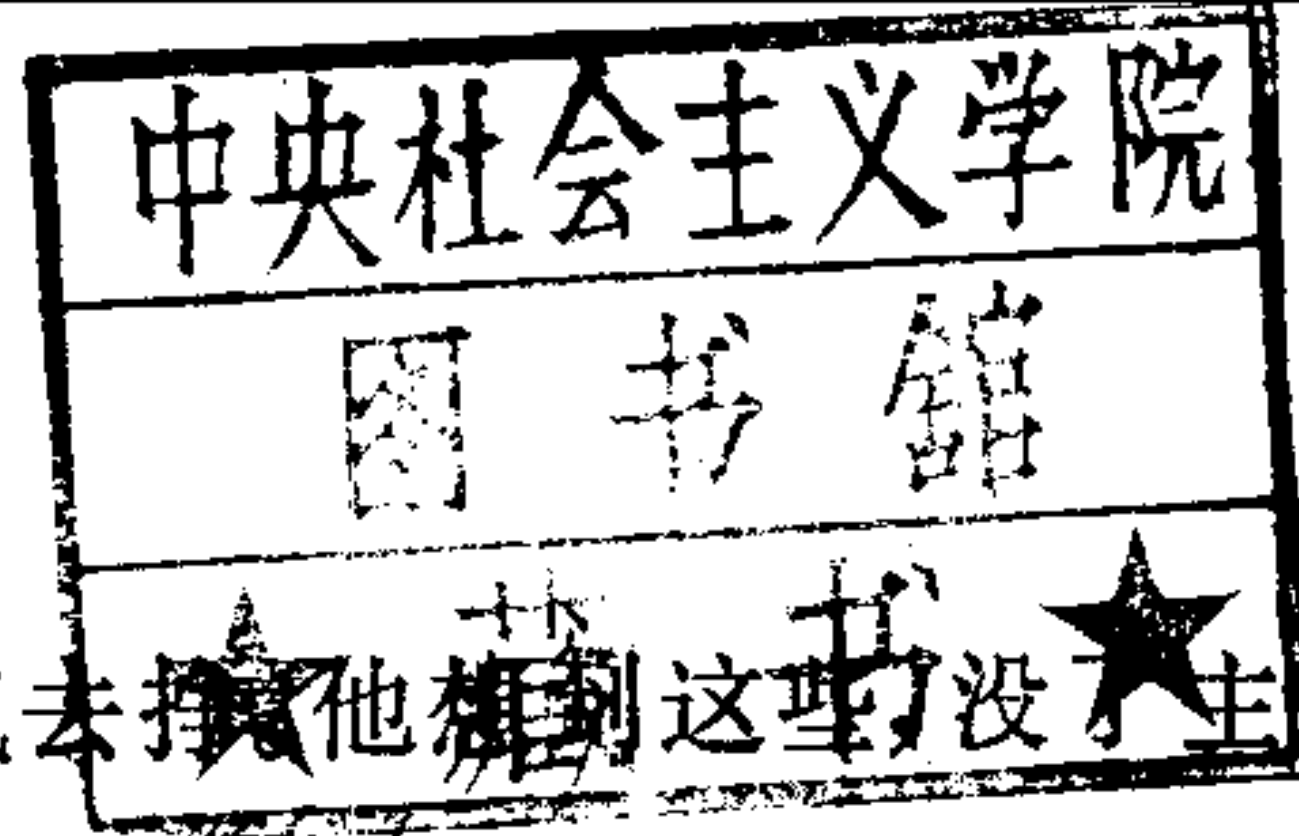 中央社会主义学院
图书馆
★ 藏书 ★
去 他想到这些 没了主